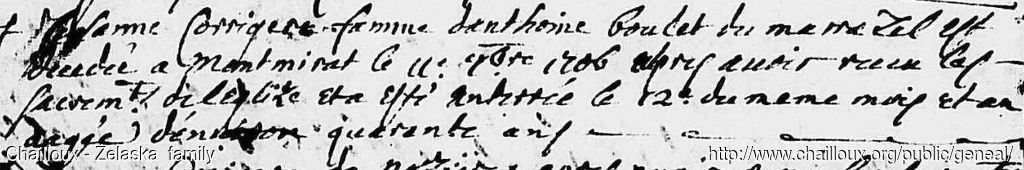 Susanne Corrigere famme danthoine boudet du marrazel est
decedée a montmirat le 11e xbre 1706 apres avoir receu les
sacremts de leglize et a esté anterrée le 12e du meme mois et an
aagée d'environ quarante ans
Chailloux - Zelaska family
http://www.chailloux.org/public/geneal/